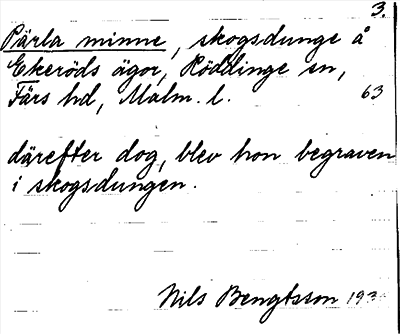 3.
Pärla minne, skogsdunge å
Ekeröds ägor, Röddinge sn,
Färs hd, Malm. l. 63
därefter dog, blev hon begraven
i skogsdungen.
Nils Bengtsson